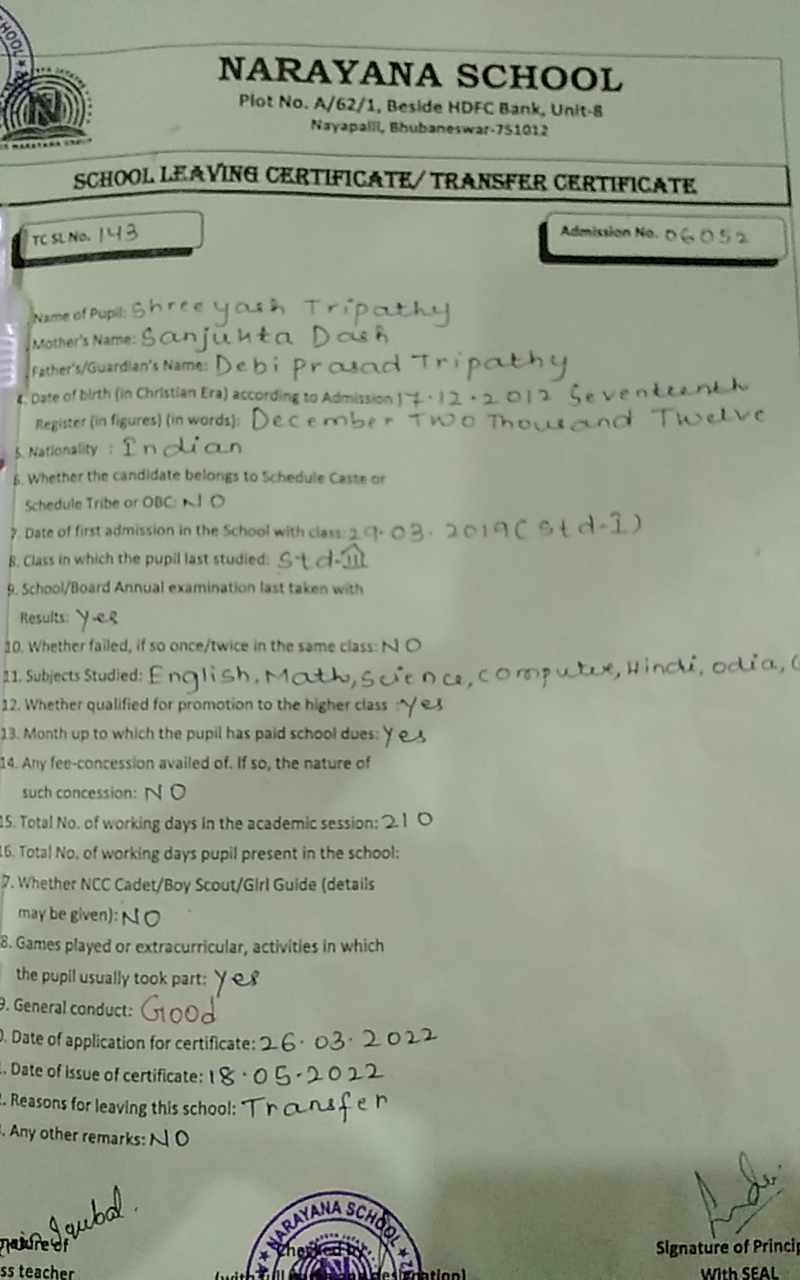 NARAYANA SCHOOL
Plot No. A/62/1, Beside HDFC Bank, Unit-8
Nayapalli, Bhubaneswar-751012
SCHOOL LEAVING CERTIFICATE/ TRANSFER CERTIFICATE
TC SL No. 143
Admission No. 06052
Name of Pupil: Shreeyash Tripathy
Mother's Name: Sanjukta Dash
Father's/Guardian's Name: Debi Prasad Tripathy
4. Date of birth (in Christian Era) according to Admission 17.12.2012 Seventeenth
Register (in figures) (in words): December Two Thousand Twelve
5. Nationality : Indian
6. Whether the candidate belongs to Schedule Caste or
Schedule Tribe or OBC: NO
7. Date of first admission in the School with class: 29.03.2019 (Std-I)
8. Class in which the pupil last studied: Std-III
9. School/Board Annual examination last taken with
Results: Yes
10. Whether failed, if so once/twice in the same class: NO
11. Subjects Studied: English, Math, Science, computer, Hindi, odia, G
12. Whether qualified for promotion to the higher class : Yes
13. Month up to which the pupil has paid school dues: Yes
14. Any fee-concession availed of. If so, the nature of
such concession: NO
15. Total No. of working days in the academic session: 210
16. Total No. of working days pupil present in the school:
7. Whether NCC Cadet/Boy Scout/Girl Guide (details
may be given): NO
8. Games played or extracurricular, activities in which
the pupil usually took part: Yes
9. General conduct: Good
0. Date of application for certificate: 26.03.2022
. Date of issue of certificate: 18.05.2022
. Reasons for leaving this school: Transfer
. Any other remarks: NO
Iqubal
NARAYANA SCHOOL
of
Checked by
Signature of Princip
ss teacher
(with full
With SEAL